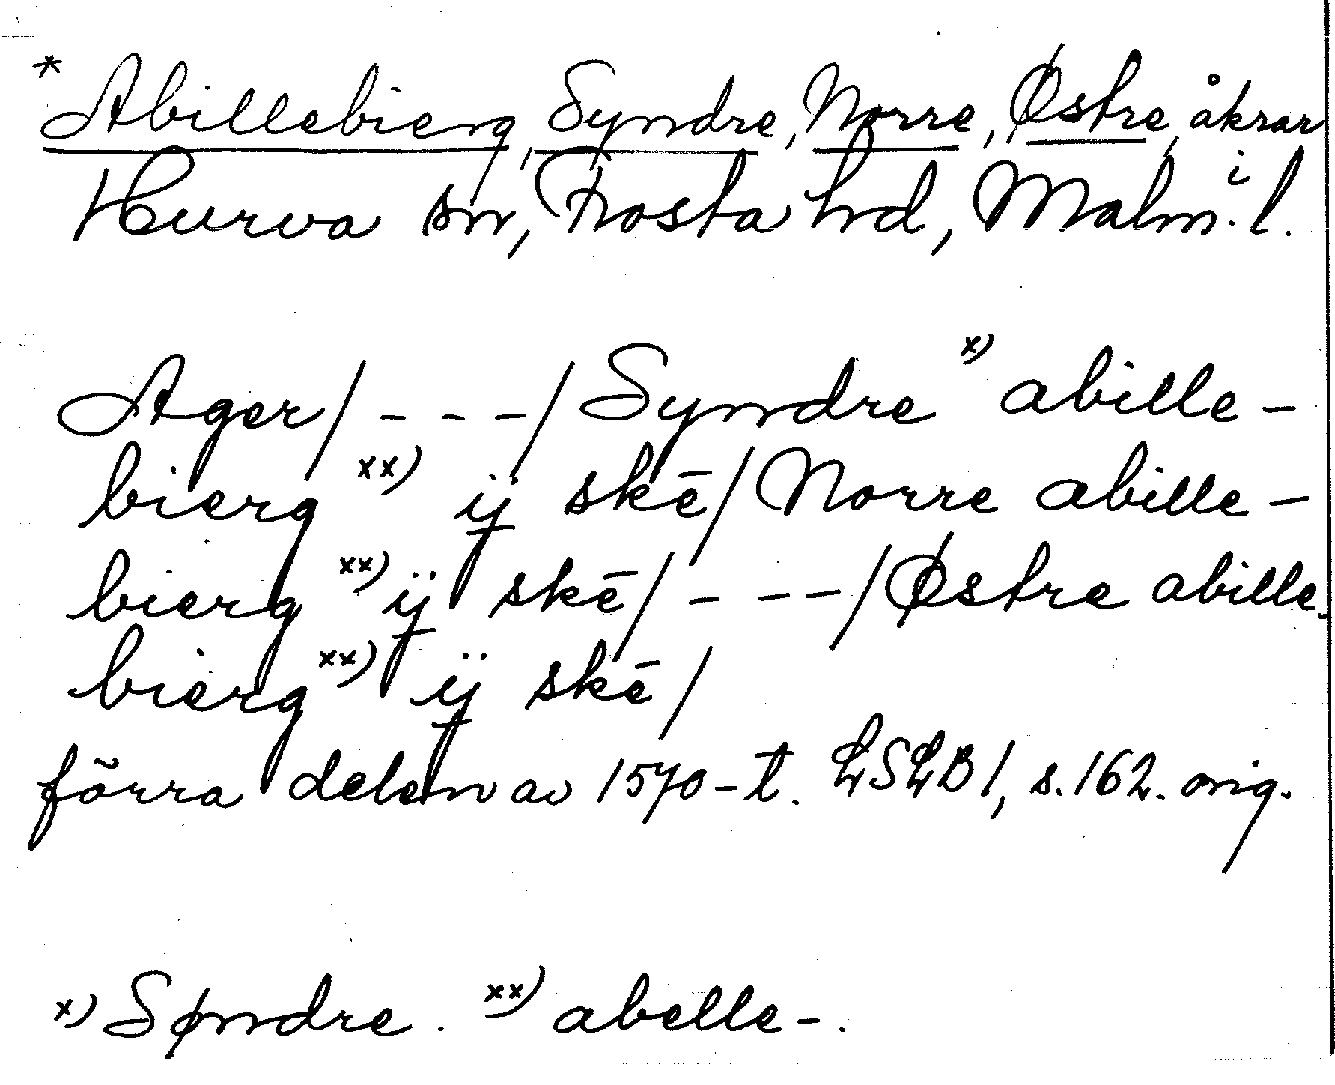 * Abillebierg, Syndre, Norre, Østre, åkrar i
Hurva sn, Frosta hd, Malm. l.
Ager/ - - -/ Syndre x) abille-
bierg xx) ÿ skē/ Norre abille-
bierg xx) ÿ skē/ - - -/ Østre abille-
bierg xx) ÿ skē/
förra delen av 1570-t. LSLB 1, s. 162. orig.
x) Søndre. xx) abelle-.